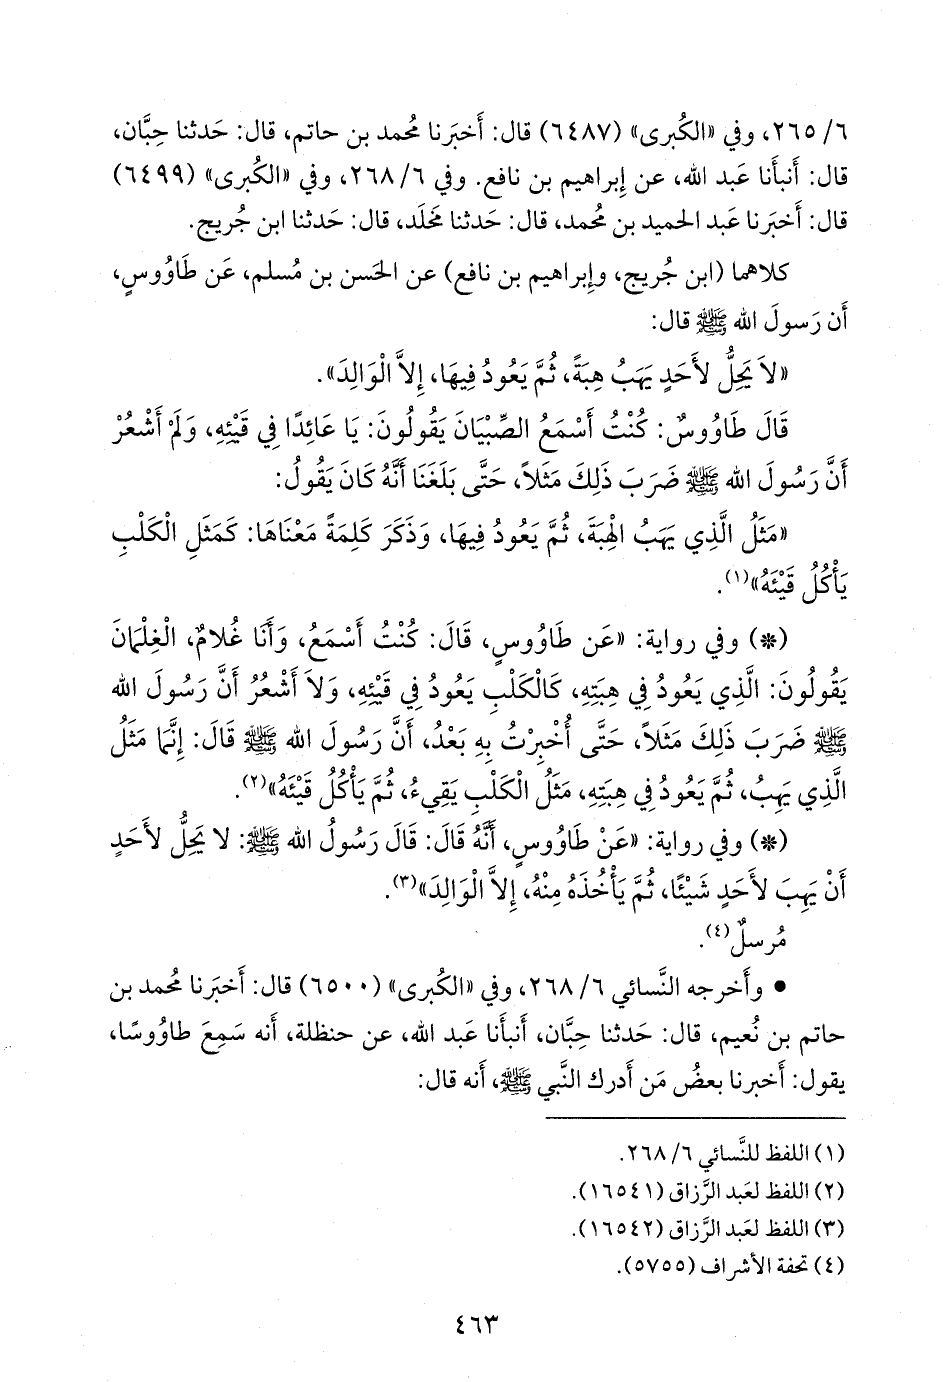 ٦/ ٢٦٥، وفي «الكُبرى» (٦٤٨٧) قال: أَخبَرنا مُحمد بن حاتم، قال: حَدثنا حِبَّان،
قال: أَنبأَنا عَبد الله، عن إِبراهيم بن نافع. وفي ٦/ ٢٦٨، وفي «الكُبرى» (٦٤٩٩)
قال: أَخبَرنا عَبد الحميد بن مُحمد، قال: حَدثنا مَخلَد، قال: حَدثنا ابن جُريج.
كلاهما (ابن جُريج، وإِبراهيم بن نافع) عن الحَسن بن مُسلم، عَن طَاوُوسٍ،
أَن رَسولَ الله ﷺ قال:
«لاَ يَحِلُّ لأَحَدٍ يَهَبُ هِبَةً، ثُمَّ يَعُودُ فِيهَا، إِلاَّ الْوَالِدَ».
قَالَ طَاوُوسٌ: كُنْتُ أَسْمَعُ الصِّبْيَانَ يَقُولُونَ: يَا عَائِدًا فِي قَيْئِهِ، وَلَمْ أَشْعُرْ
أَنَّ رَسُولَ الله ﷺ ضَرَبَ ذَلِكَ مَثَلاً، حَتَّى بَلَغَنَا أَنَّهُ كَانَ يَقُولُ:
«مَثَلُ الَّذِي يَهَبُ الْهِبَةَ، ثُمَّ يَعُودُ فِيهَا، وَذَكَرَ كَلِمَةً مَعْنَاهَا: كَمَثَلِ الْكَلْبِ
يَأْكُلُ قَيْئَهُ»(١).
(*) وفي رواية: «عَن طَاوُوسٍ، قَالَ: كُنْتُ أَسْمَعُ، وَأَنَا غُلاَمٌ، الْغِلْمَانَ
يَقُولُونَ: الَّذِي يَعُودُ فِي هِبَتِهِ، كَالْكَلْبِ يَعُودُ فِي قَيْئِهِ، وَلاَ أَشْعُرُ أَنَّ رَسُولَ الله
ﷺ ضَرَبَ ذَلِكَ مَثَلاً، حَتَّى أُخْبِرْتُ بِهِ بَعْدُ، أَنَّ رَسُولَ الله ﷺ قَالَ: إِنَّمَا مَثَلُ
الَّذِي يَهِبُ، ثُمَّ يَعُودُ فِي هِبَتِهِ، مَثَلُ الْكَلْبِ يَقِيءُ، ثُمَّ يَأْكُلُ قَيْئَهُ»(٢).
(*) وفي رواية: «عَنْ طَاوُوسٍ، أَنَّهُ قَالَ: قَالَ رَسُولُ الله ﷺ: لا يَحِلُّ لأَحَدٍ
أَنْ يَهِبَ لأَحَدٍ شَيْئًا، ثُمَّ يَأْخُذَهُ مِنْهُ، إِلاَّ الْوَالِدَ»(٣).
مُرسلٌ(٤).
• وأَخرجه النَّسائي ٦/ ٢٦٨، وفي «الكُبرى» (٦٥٠٠) قال: أَخبَرنا مُحمد بن
حاتم بن نُعيم، قال: حَدثنا حِبَّان، أَنبأَنا عَبد الله، عن حنظلة، أَنه سَمِعَ طاوُوسًا،
يقول: أَخبرنا بعضُ مَن أَدرك النَّبي ﷺ، أَنه قال:
(١) اللفظ للنَّسائي ٦/ ٢٦٨.
(٢) اللفظ لعَبد الرَّزاق (١٦٥٤١).
(٣) اللفظ لعَبد الرَّزاق (١٦٥٤٢).
(٤) تحفة الأشراف (٥٧٥٥).
٤٦٣